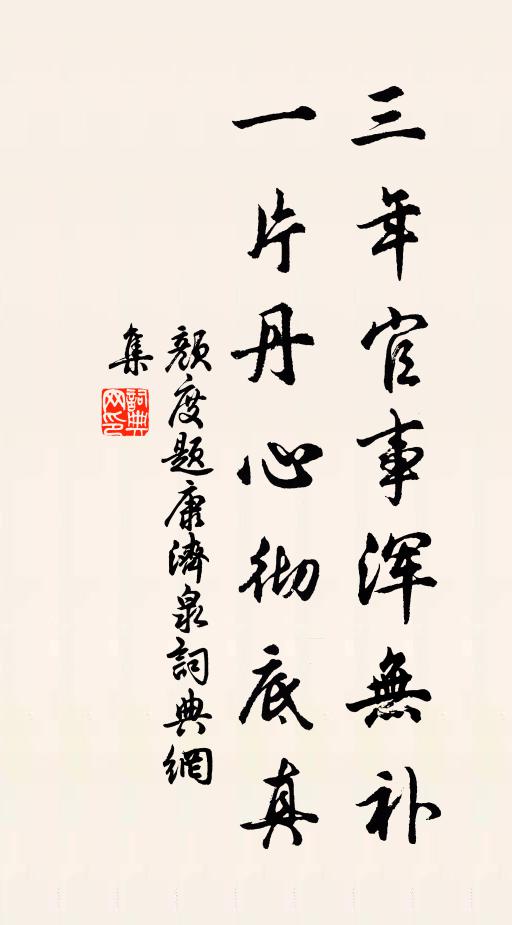 三年官事浑無补
一片丹心彻底真
顏度題康濟泉詞典網
集
詞典
网印